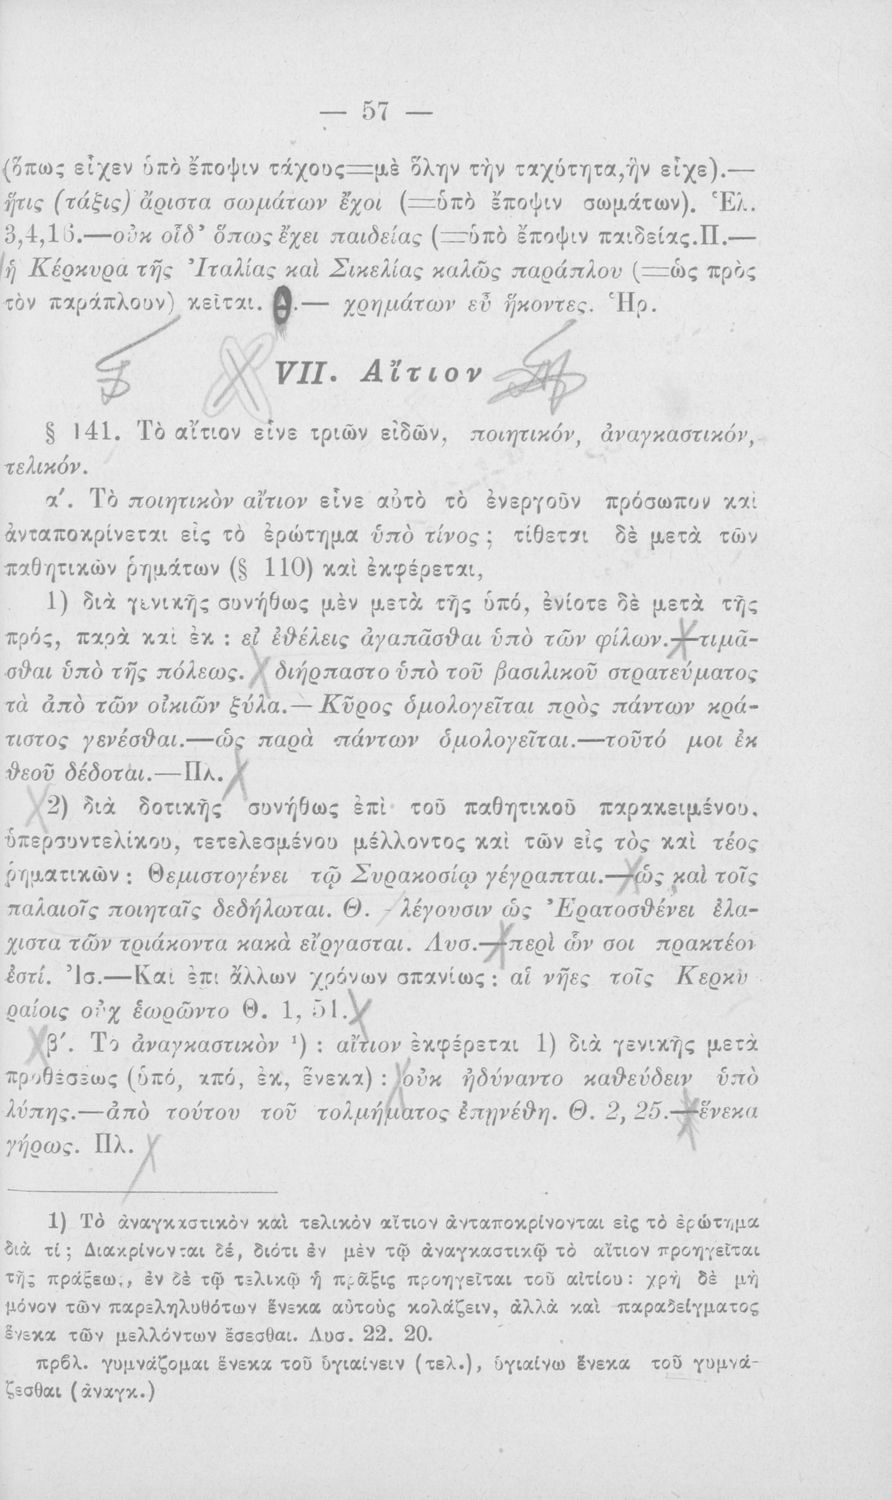 — 57 —
(ὅπως εἶχεν ὑπὸ ἔποψιν τάχους=μὲ ὅλην τὴν ταχύτητα,ἣν εἶχε).—
ἥτις (τάξις) ἄριστα σωμάτων ἔχοι (=ὑπὸ ἔποψιν σωμάτων). Ἑλ.
3,4,16.—οὐκ οἶδ' ὅπως ἔχει παιδείας (=ὑπὸ ἔποψιν παιδείας.Π.—
ἡ Κέρκυρα τῆς Ἰταλίας καὶ Σικελίας καλῶς παράπλου (=ὡς πρὸς
τὸν παράπλουν) κεῖται. Θ.— χρημάτων εὖ ἥκοντες. Ἡρ.
VII. Αἴτιον
§ 141. Τὸ αἴτιον εἶνε τριῶν εἰδῶν, ποιητικόν, ἀναγκαστικόν,
τελικόν.
α'. Τὸ ποιητικὸν αἴτιον εἶνε αὐτὸ τὸ ἐνεργοῦν πρόσωπον καὶ
ἀνταποκρίνεται εἰς τὸ ἐρώτημα ὑπὸ τίνος ; τίθεται δὲ μετὰ τῶν
παθητικῶν ῥημάτων (§ 110) καὶ ἐκφέρεται,
1) διὰ γενικῆς συνήθως μὲν μετὰ τῆς ὑπό, ἐνίοτε δὲ μετὰ τῆς
πρός, παρὰ καὶ ἐκ : εἰ ἐθέλεις ἀγαπᾶσθαι ὑπὸ τῶν φίλων.—τιμᾶ-
σθαι ὑπὸ τῆς πόλεως. διήρπαστο ὑπὸ τοῦ βασιλικοῦ στρατεύματος
τὰ ἀπὸ τῶν οἰκιῶν ξύλα.—Κῦρος ὁμολογεῖται πρὸς πάντων κρά-
τιστος γενέσθαι.—ὡς παρὰ πάντων ὁμολογεῖται.—τοῦτό μοι ἐκ
θεοῦ δέδοται.—Πλ.
2) διὰ δοτικῆς συνήθως ἐπὶ τοῦ παθητικοῦ παρακειμένου,
ὑπερσυντελίκου, τετελεσμένου μέλλοντος καὶ τῶν εἰς τὸς καὶ τέος
ῥηματικῶν : Θεμιστογένει τῷ Συρακοσίῳ γέγραπται.—ὡς καὶ τοῖς
παλαιοῖς ποιηταῖς δεδήλωται. Θ. - λέγουσιν ὡς Ἐρατοσθένει ἐλα-
χιστα τῶν τριάκοντα κακὰ εἴργασται. Λυσ.—περὶ ὧν σοι πρακτέον
ἐστί. Ἰσ.—Καὶ ἐπὶ ἄλλων χρόνων σπανίως : αἱ νῆες τοῖς Κερκυ
ραίοις οὐχ ἑωρῶντο Θ. 1, 51.
β'. Τὸ ἀναγκαστικὸν ¹) : αἴτιον ἐκφέρεται 1) διὰ γενικῆς μετὰ
προθέσεως (ὑπό, ἀπό, ἐκ, ἕνεκα) : οὐκ ἠδύναντο καθεύδειν ὑπὸ
λύπης.—ἀπὸ τούτου τοῦ τολμήματος ἐπῃνέθη. Θ. 2, 25.—ἕνεκα
γήρως. Πλ.
1) Τὸ ἀναγκαστικὸν καὶ τελικὸν αἴτιον ἀνταποκρίνονται εἰς τὸ ἐρώτημα
διὰ τί; Διακρίνονται δέ, διότι ἐν μὲν τῷ ἀναγκαστικῷ τὸ αἴτιον προηγεῖται
τῆς πράξεως, ἐν δὲ τῷ τελικῷ ἡ πρᾶξις προηγεῖται τοῦ αἰτίου: χρὴ δὲ μὴ
μόνον τῶν παρεληλυθότων ἕνεκα αὐτοὺς κολάζειν, ἀλλὰ καὶ παραδείγματος
ἕνεκα τῶν μελλόντων ἔσεσθαι. Λυσ. 22. 20.
πρβλ. γυμνάζομαι ἕνεκα τοῦ ὑγιαίνειν (τελ.), ὑγιαίνω ἕνεκα τοῦ γυμνά-
ζεσθαι (ἀναγκ.)